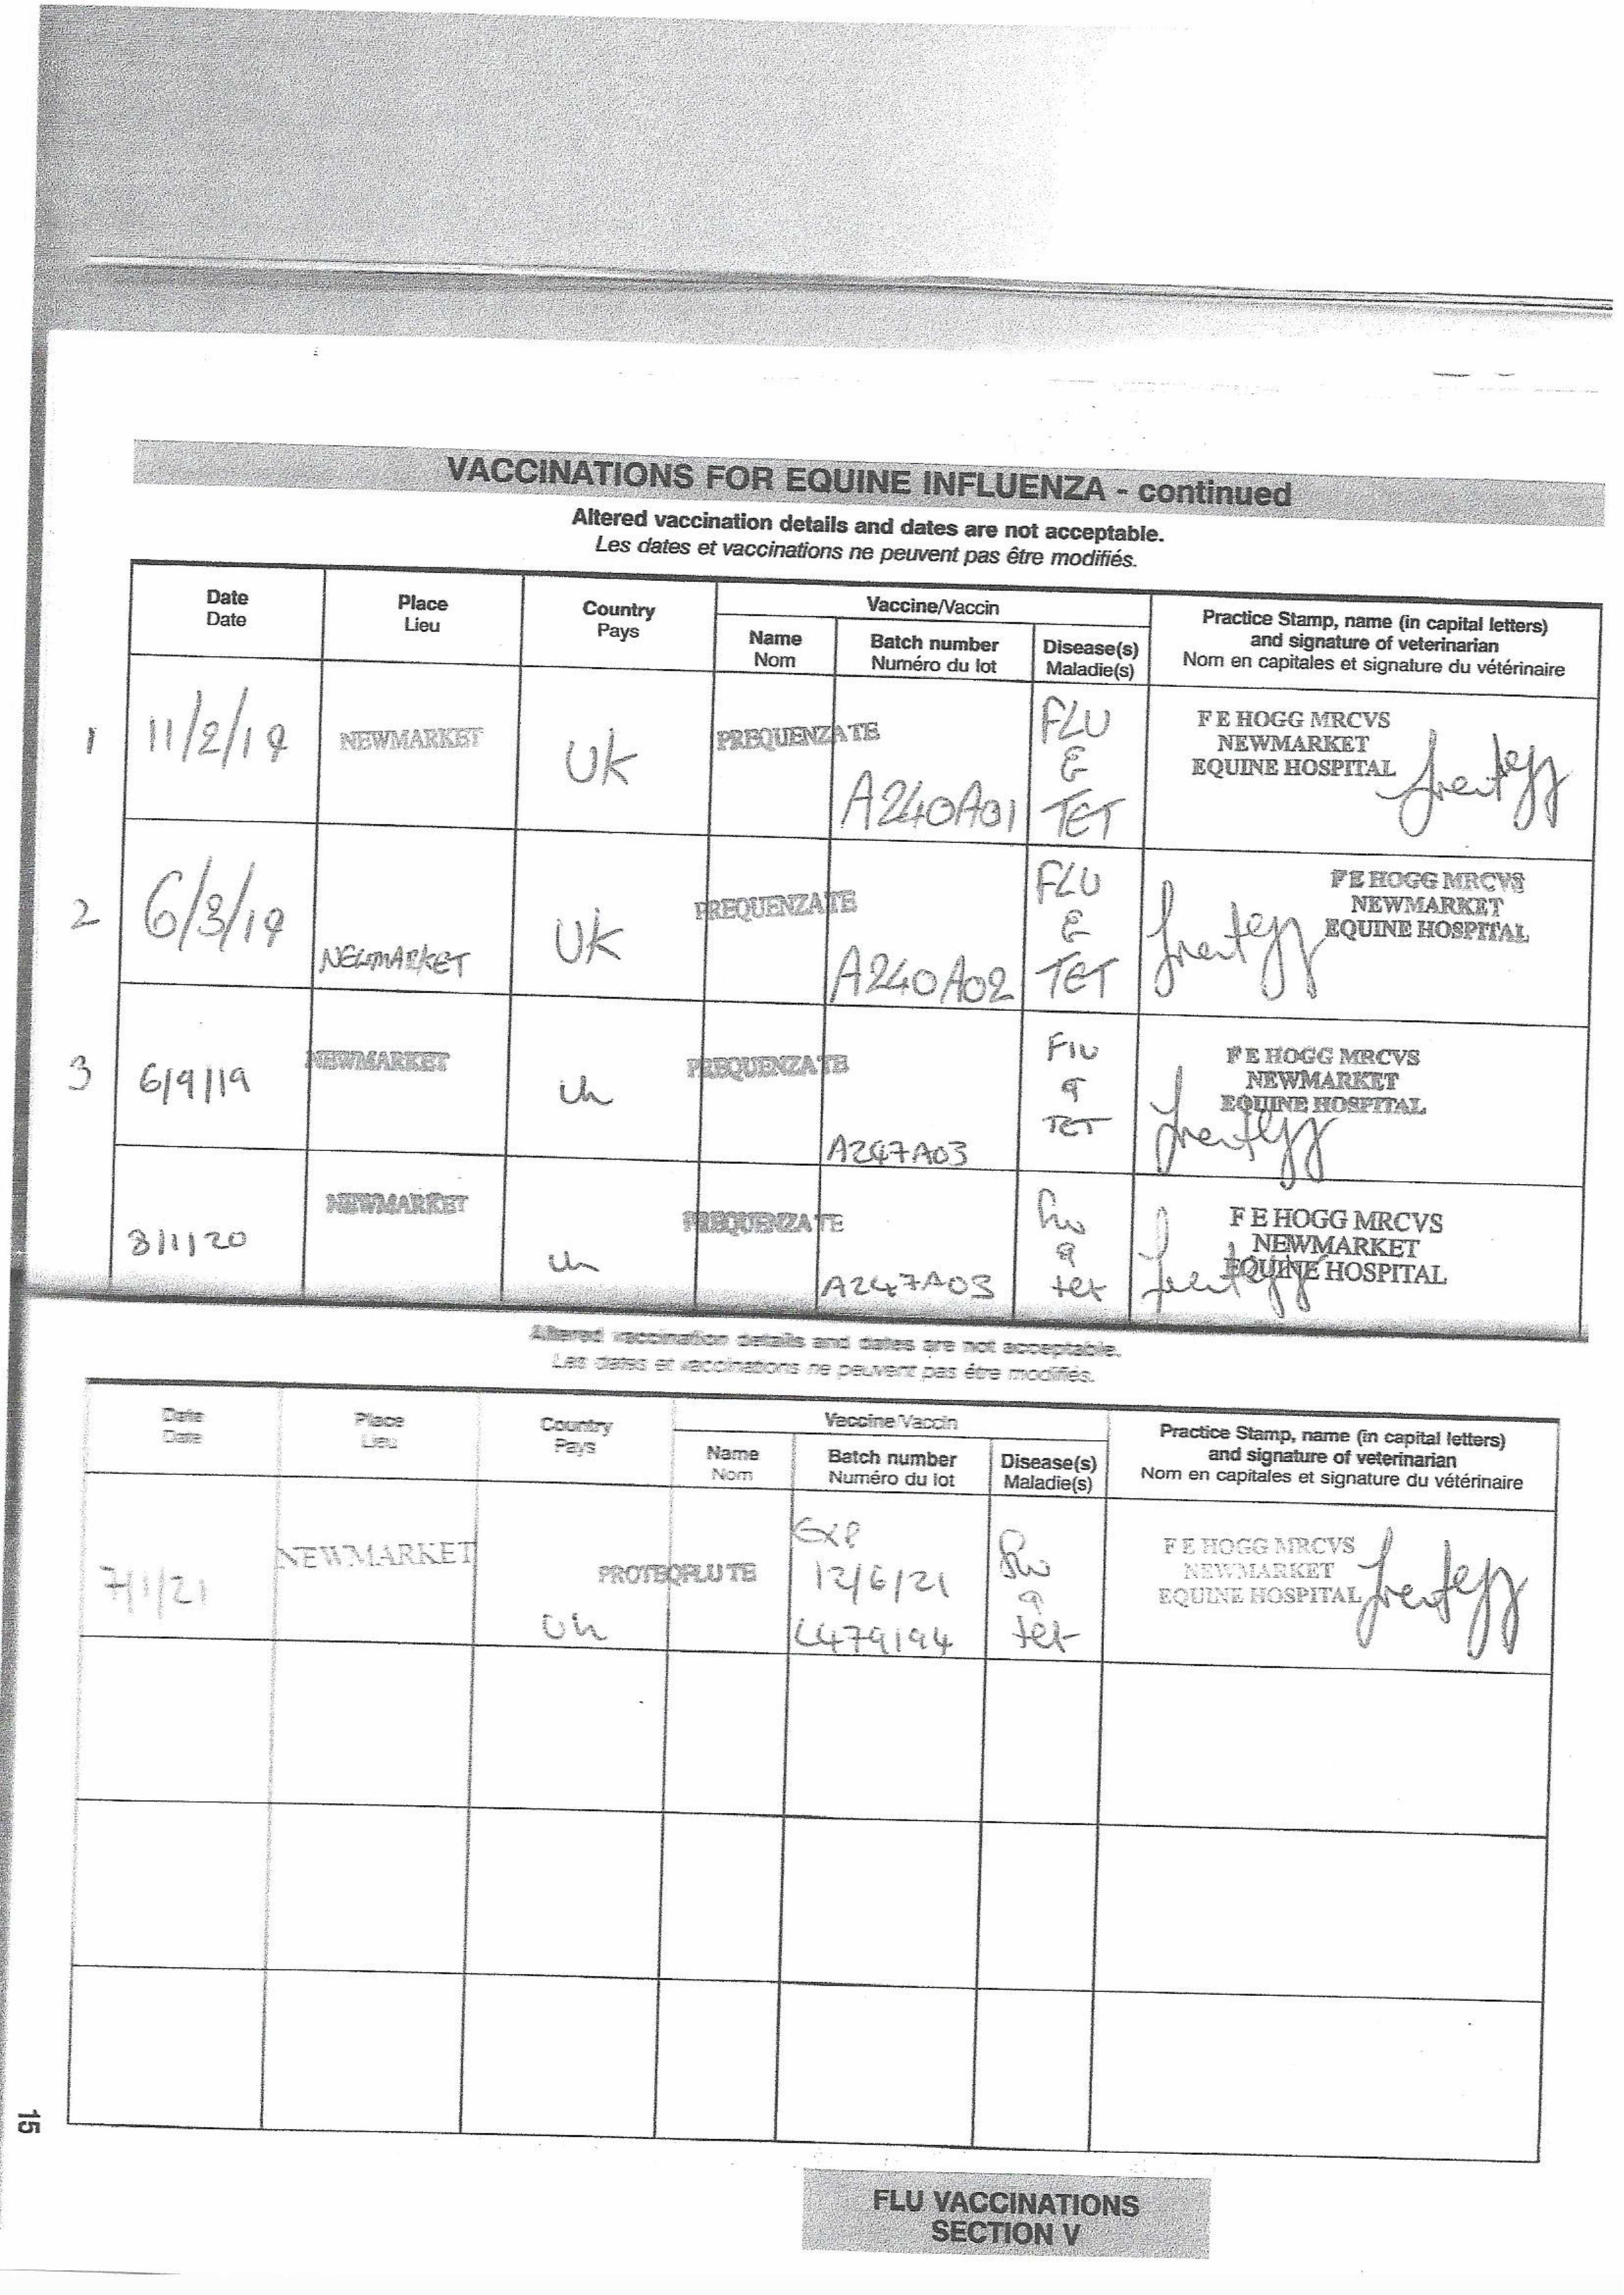 VACCINATIONS FOR EQUINE INFLUENZA - continued
Altered vaccination details and dates are not acceptable.
Les dates et vaccinations ne peuvent pas être modifiés.
Date
Date
Place
Lieu
Country
Pays
Vaccine/Vaccin
Name
Nom
Batch number
Numéro du lot
Disease(s)
Maladie(s)
Practice Stamp, name (in capital letters)
and signature of veterinarian
Nom en capitales et signature du vétérinaire
1
11/2/19
NEWMARKET
UK
PREQUENZA TE
A240A01
FLU
&
TET
F E HOGG MRCVS
NEWMARKET
EQUINE HOSPITAL
2
6/3/19
NEWMARKET
UK
PREQUENZA TE
A240A02
FLU
&
TET
F E HOGG MRCVS
NEWMARKET
EQUINE HOSPITAL
3
6/9/19
NEWMARKET
Uk
PREQUENZA TE
A247A03
Flu
&
TET
F E HOGG MRCVS
NEWMARKET
EQUINE HOSPITAL
8/1/20
NEWMARKET
Uk
PREQUENZA TE
A247A03
flu
&
tet
F E HOGG MRCVS
NEWMARKET
EQUINE HOSPITAL
Altered vaccination details and dates are not acceptable.
Les dates et vaccinations ne peuvent pas être modifiés.
Date
Date
Place
Lieu
Country
Pays
Vaccine/Vaccin
Name
Nom
Batch number
Numéro du lot
Disease(s)
Maladie(s)
Practice Stamp, name (in capital letters)
and signature of veterinarian
Nom en capitales et signature du vétérinaire
7/1/21
NEWMARKET
Uk
PROTEQFLU TE
Exp
12/6/21
L479194
flu
&
tet
F E HOGG MRCVS
NEWMARKET
EQUINE HOSPITAL
15
FLU VACCINATIONS
SECTION V